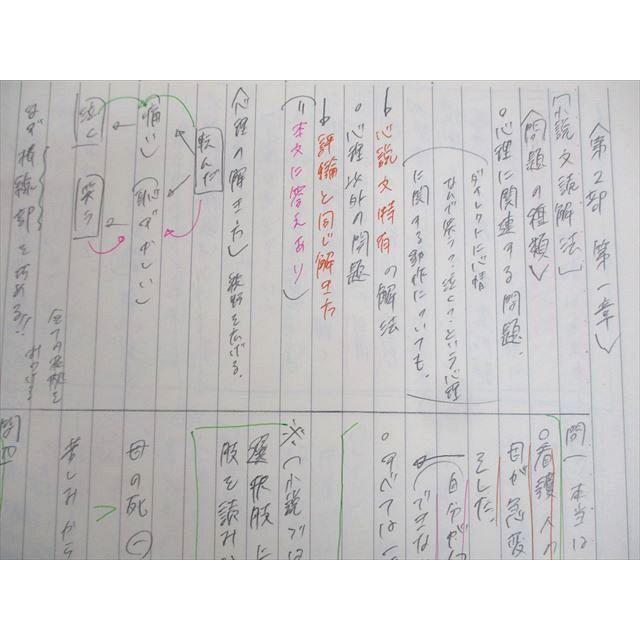 〈第2部 第一章〉
〔小説文読解法〕
〈問題の種類〉
○心理に関連する問題.
ダイレクトに心情
なんで笑う・泣く?という心理
に関する動作についても.
↳ 小説文特有の解法
○心理以外の問題
↳ 評論と同じ解き方
(=本文に答えあり)
〈心理の解き方〉 視野を広げる.
転んだ
痛い 恥ずかしい
泣く 笑う
まず傍線部を攻める!!
全ての根拠を
問一 本当は
○看護人の
母が急変
をした.
自分が
できな
○すべては
※〈小説では
選択肢に
肢を読み
母の死
苦しみから
問四